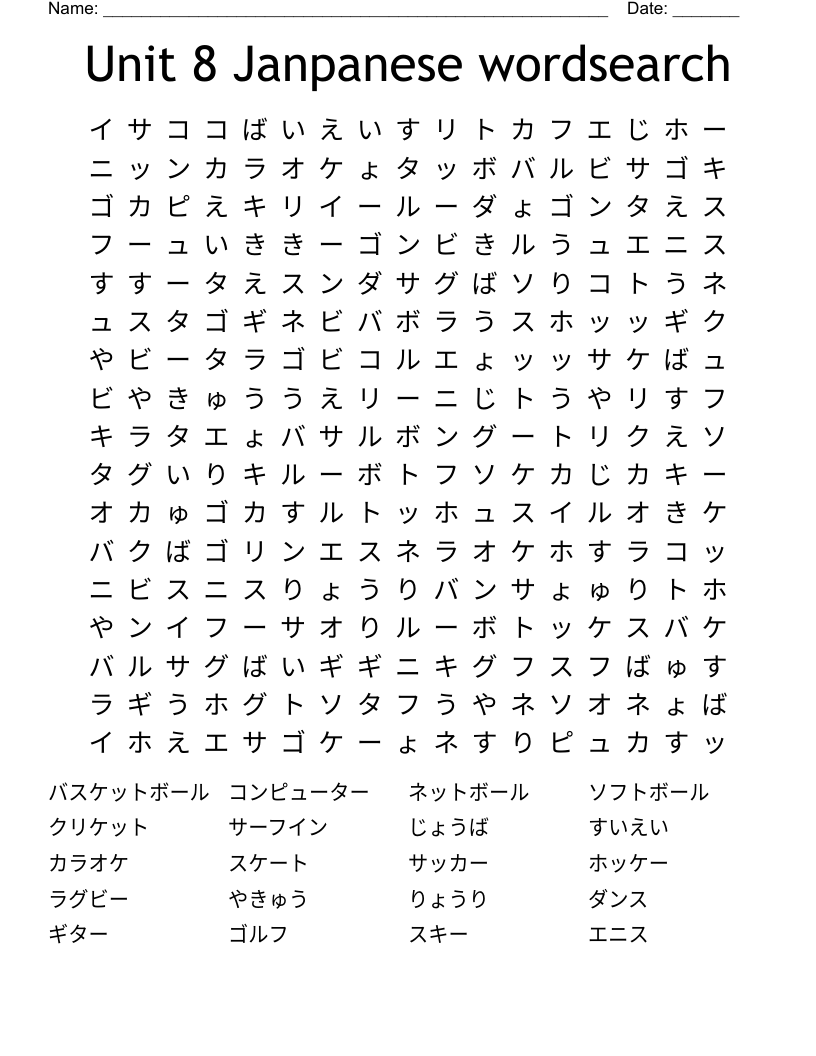 Name: _______________________________________________________ Date: _______
Unit 8 Janpanese wordsearch
イ サ コ コ ば い え い す リ ト カ フ エ じ ホ ー
ニ ッ ン カ ラ オ ケ ょ タ ッ ボ バ ル ビ サ ゴ キ
ゴ カ ピ え キ リ イ ー ル ー ダ ょ ゴ ン タ え ス
フ ー ュ い き き ー ゴ ン ビ き ル う ュ エ ニ ス
す す ー タ え ス ン ダ サ グ ば ソ り コ ト う ネ
ュ ス タ ゴ ギ ネ ビ バ ボ ラ う ス ホ ッ ッ ギ ク
や ビ ー タ ラ ゴ ビ コ ル エ ょ ッ ッ サ ケ ば ュ
ビ や き ゅ う う え リ ー ニ じ ト う や リ す フ
キ ラ タ エ ょ バ サ ル ボ ン グ ー ト リ ク え ソ
タ グ い り キ ル ー ボ ト フ ソ ケ カ じ カ キ ー
オ カ ゅ ゴ カ す ル ト ッ ホ ュ ス イ ル オ き ケ
バ ク ば ゴ リ ン エ ス ネ ラ オ ケ ホ す ラ コ ッ
ニ ビ ス ニ ス り ょ う り バ ン サ ょ ゅ り ト ホ
や ン イ フ ー サ オ り ル ー ボ ト ッ ケ ス バ ケ
バ ル サ グ ば い ギ ギ ニ キ グ フ ス フ ば ゅ す
ラ ギ う ホ グ ト ソ タ フ う や ネ ソ オ ネ ょ ば
イ ホ え エ サ ゴ ケ ー ょ ネ す り ピ ュ カ す ッ
バスケットボール コンピューター ネットボール ソフトボール
クリケット サーフイン じょうば すいえい
カラオケ スケート サッカー ホッケー
ラグビー やきゅう りょうり ダンス
ギター ゴルフ スキー エニス